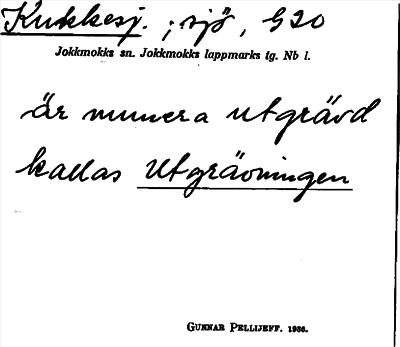 Kukkesj. ; sjö, G20
Jokkmokks sn. Jokkmokks lappmarks tg. Nb l.
är numera utgrävd
kallas Utgrävningen
GUNNAR PELLIJEFF. 1936.